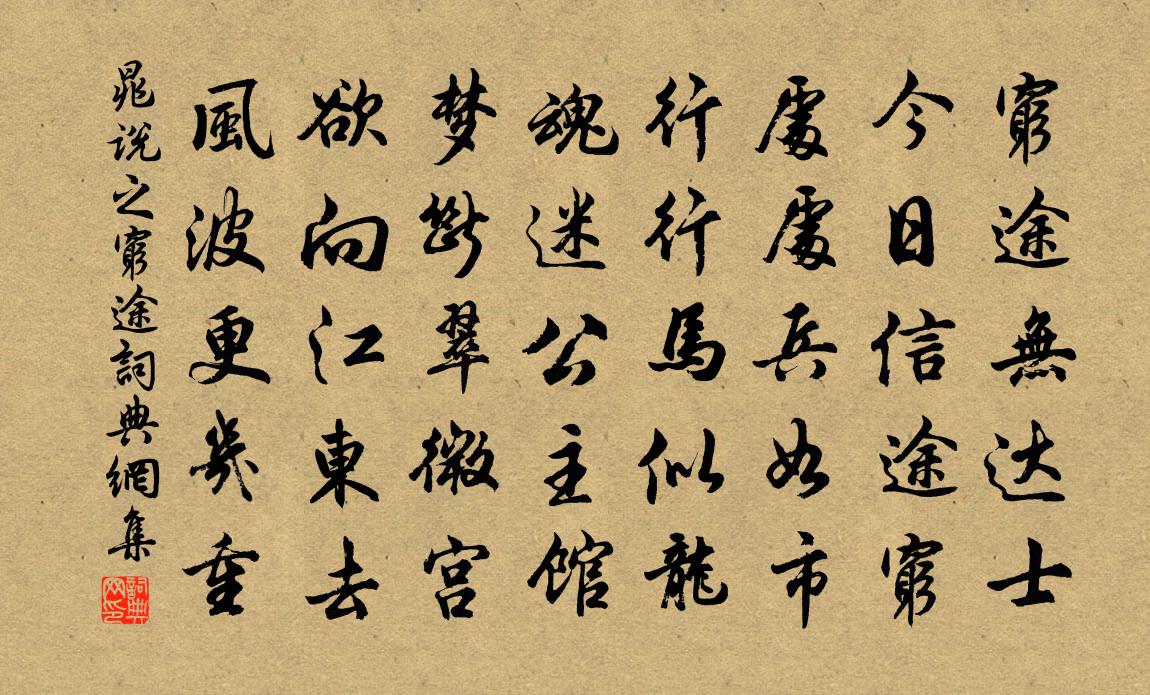 窮途無达士
今日信途窮
處處兵如市
行行馬似龍
魂迷公主館
梦斷翠微宫
欲向江東去
風波更幾重
晁说之窮途詞典網集
詞典
网印